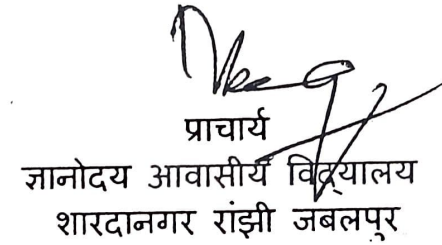 प्राचार्य
ज्ञानोदय आवासीय विद्यालय
शारदानगर रांझी जबलपुर